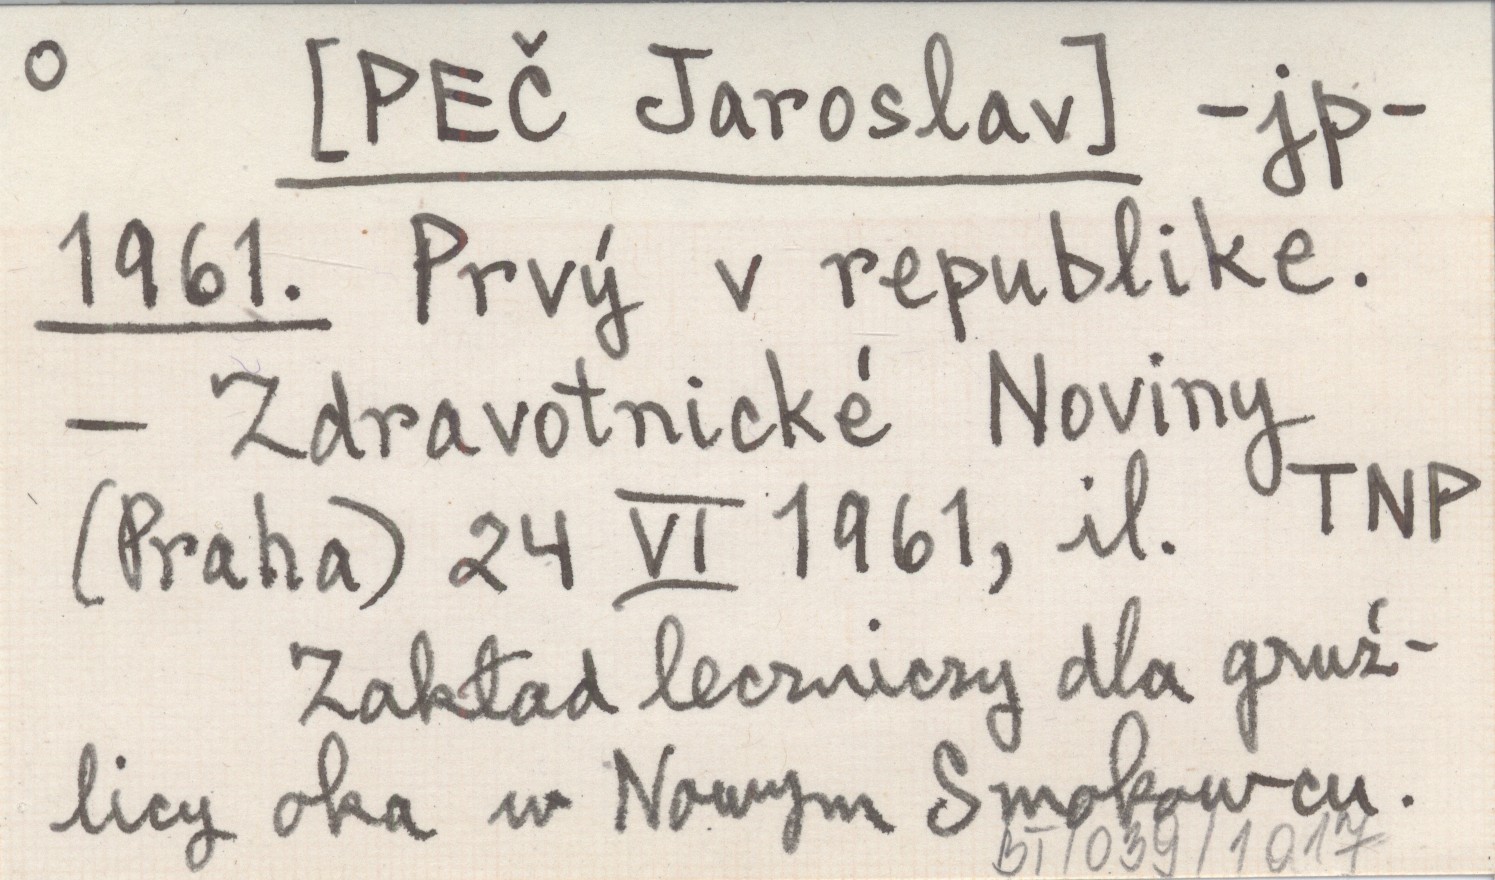 o [PEČ Jaroslav] -jp-
1961. Prvý v republike.
— Zdravotnické Noviny
(Praha) 24 VI 1961, il. TNP
Zakład leczniczy dla gruź-
licy oka w Nowym Smokowcu.
BI/039/1017